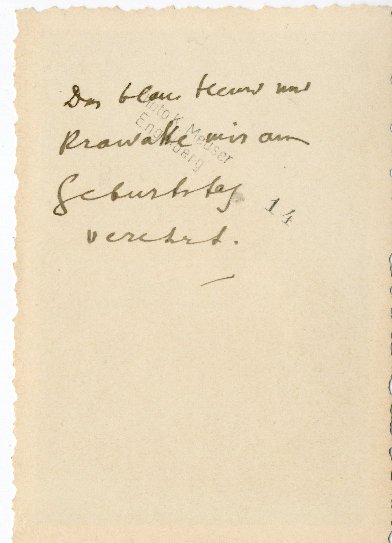 Das blaue Hemd und
Krawatte mir am
Geburtstag
verehrt.
Foto K. Meuser
Engelberg
14